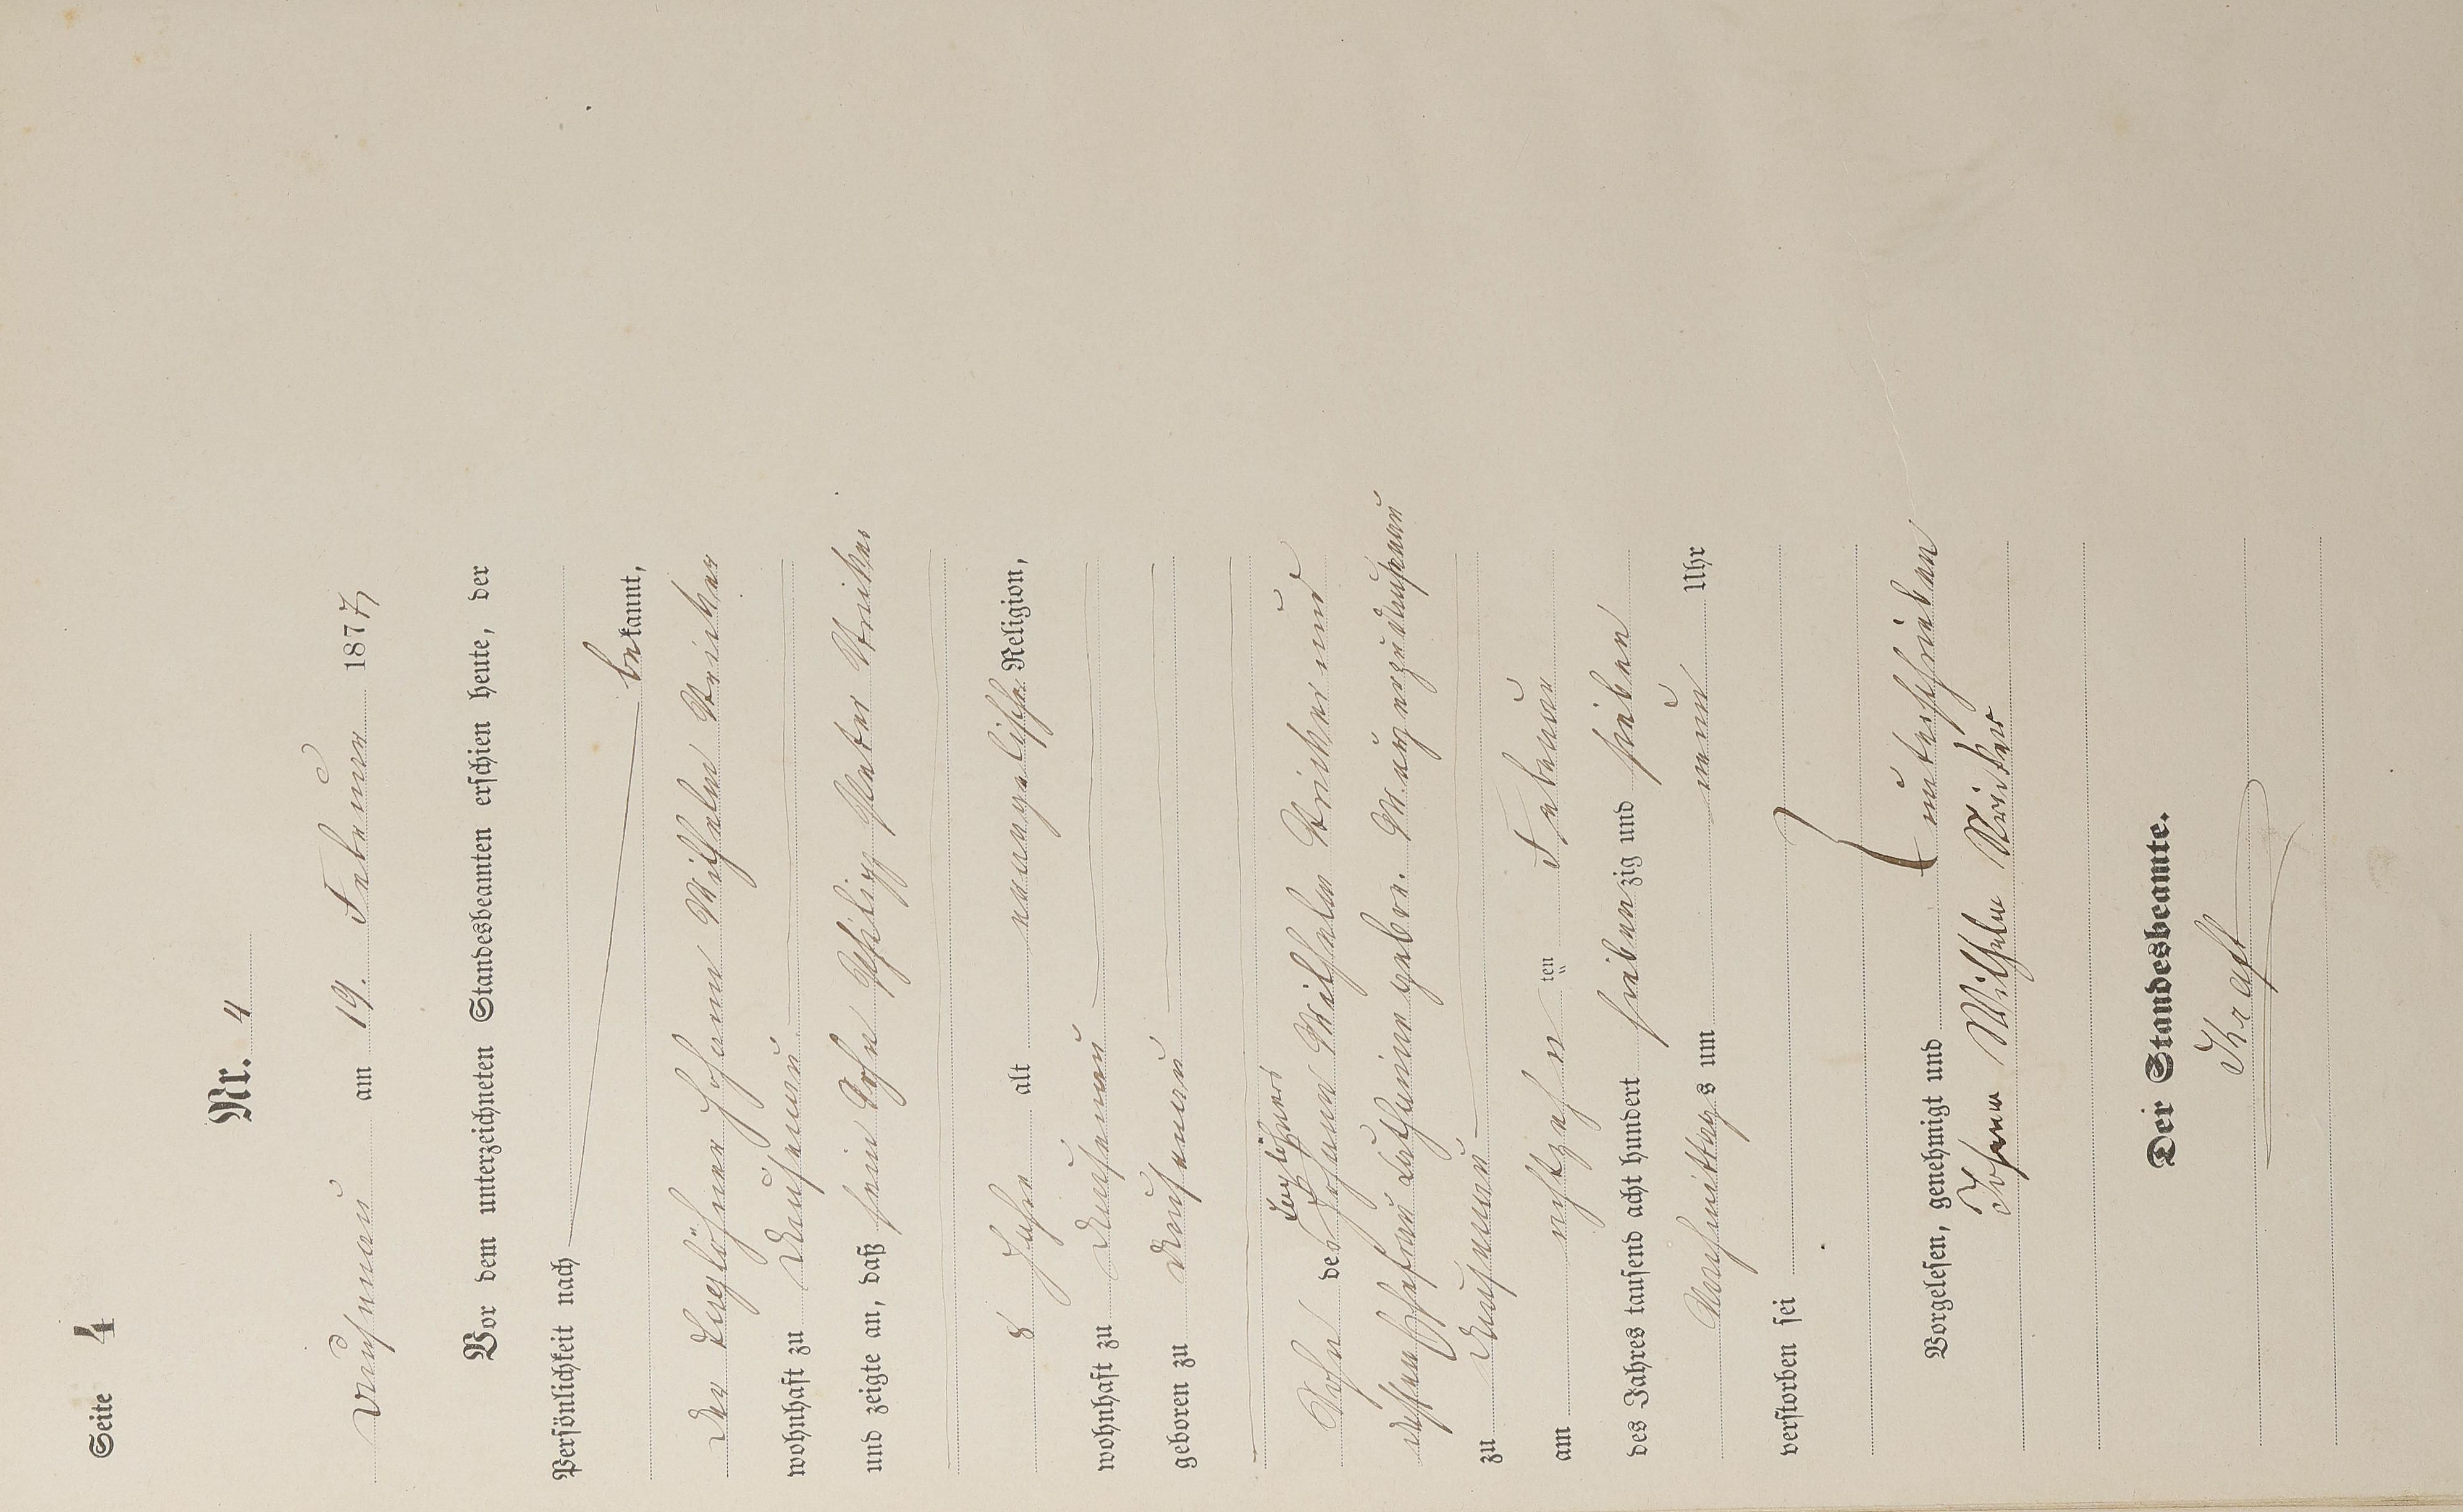 Seite 4
Nr. 4
Dausenau am 19. Februar 1877
Vor dem unterzeichneten Standesbeamten erschien heute, der
Persönlichkeit nach
bekannt,
der Taglöhner Johann Wilhelm
wohnhaft zu Dausenau
und zeigte an, daß sein Sohn Philipp Peter
8 Jahre alt evangelischer Religion,
wohnhaft zu Dausenau
geboren zu Dausenau
Taglöhners
Sohn des Johann Wilhelm und
dessen Ehefrau Catharine gebor. zu Dausenau
zu Dausenau
am achtzehn ten Februar
des Jahres tausend acht hundert siebenzig und sieben
Nachmittags um neun Uhr
verstorben sei
Vorgelesen, genehmigt und unterschrieben
Johann Wilhelm
Der Standesbeamte.
Kraft